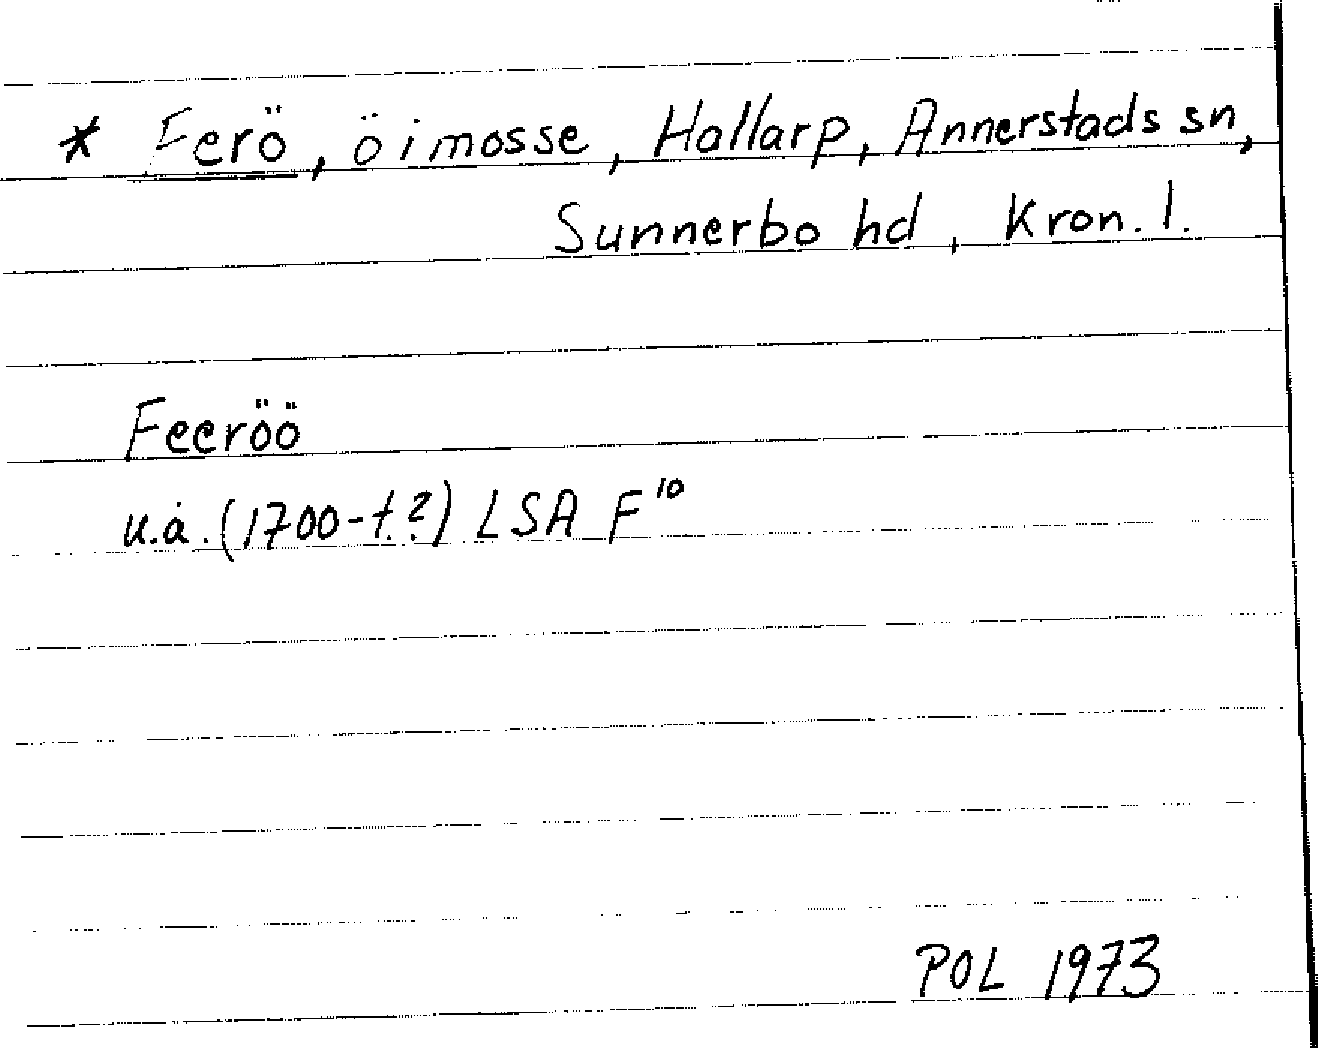 * Ferö, ö i mosse, Hallarp, Annerstads sn,
Sunnerbo hd, Kron. l.
Feeröö
u.å. (1700-t.?) LSA F¹⁰
POL 1973